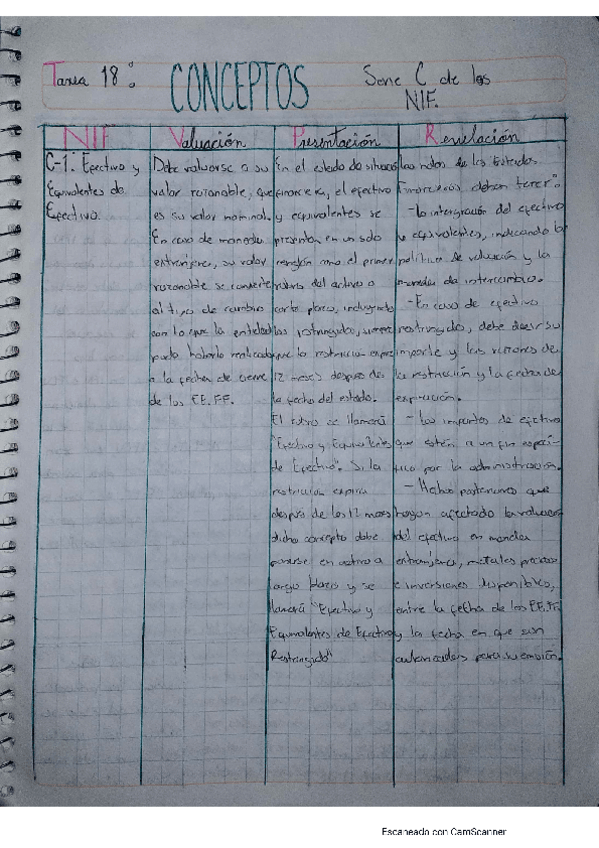 Tarea 18: CONCEPTOS Serie C de las
NIF.
NIF
Valuación
Presentación
Revelación
C-1. Efectivo y
Equivalentes de
Efectivo.
Debe valuarse a su
valor razonable, que
es su valor nominal.
En caso de moneda
extranjera, su valor
razonable se convierte
al tipo de cambio
con lo que la entidad
pudo haberlo realizado
a la fecha de cierre
de los EE.FF.
En el estado de situación
financiera, el efectivo
y equivalentes se
presentan en un solo
renglón como el primer
rubro del activo a
corto plazo, incluyendo
los restringido, siempre
que la restricción expire
12 meses después de
la fecha del estado.
El rubro se llamará
"Efectivo y Equivalentes
de Efectivo". Si la
restricción expira
después de los 12 meses
dicho concepto debe
ponerse en activo a
largo plazo y se
llamará "Efectivo y
Equivalentes de Efectivo
Restringido"
Las notas de los Estados
Financieros deben tener:
- La integración del efectivo
y equivalentes, indicando la
política de valuación y la
moneda de intercambio.
- En caso de efectivo
restringido, debe decir su
importe y las razones de
la restricción y la fecha de
expiración.
- Los importes de efectivo
que estén a un fin especí-
fico por la administración.
- Hechos posteriores que
hayan afectado la valuación
del efectivo en moneda
extranjera, metales preciosos
e inversiones disponibles,
entre la fecha de los EE.FF.
y la fecha en que son
autorizados para su emisión.
Escaneado con CamScanner